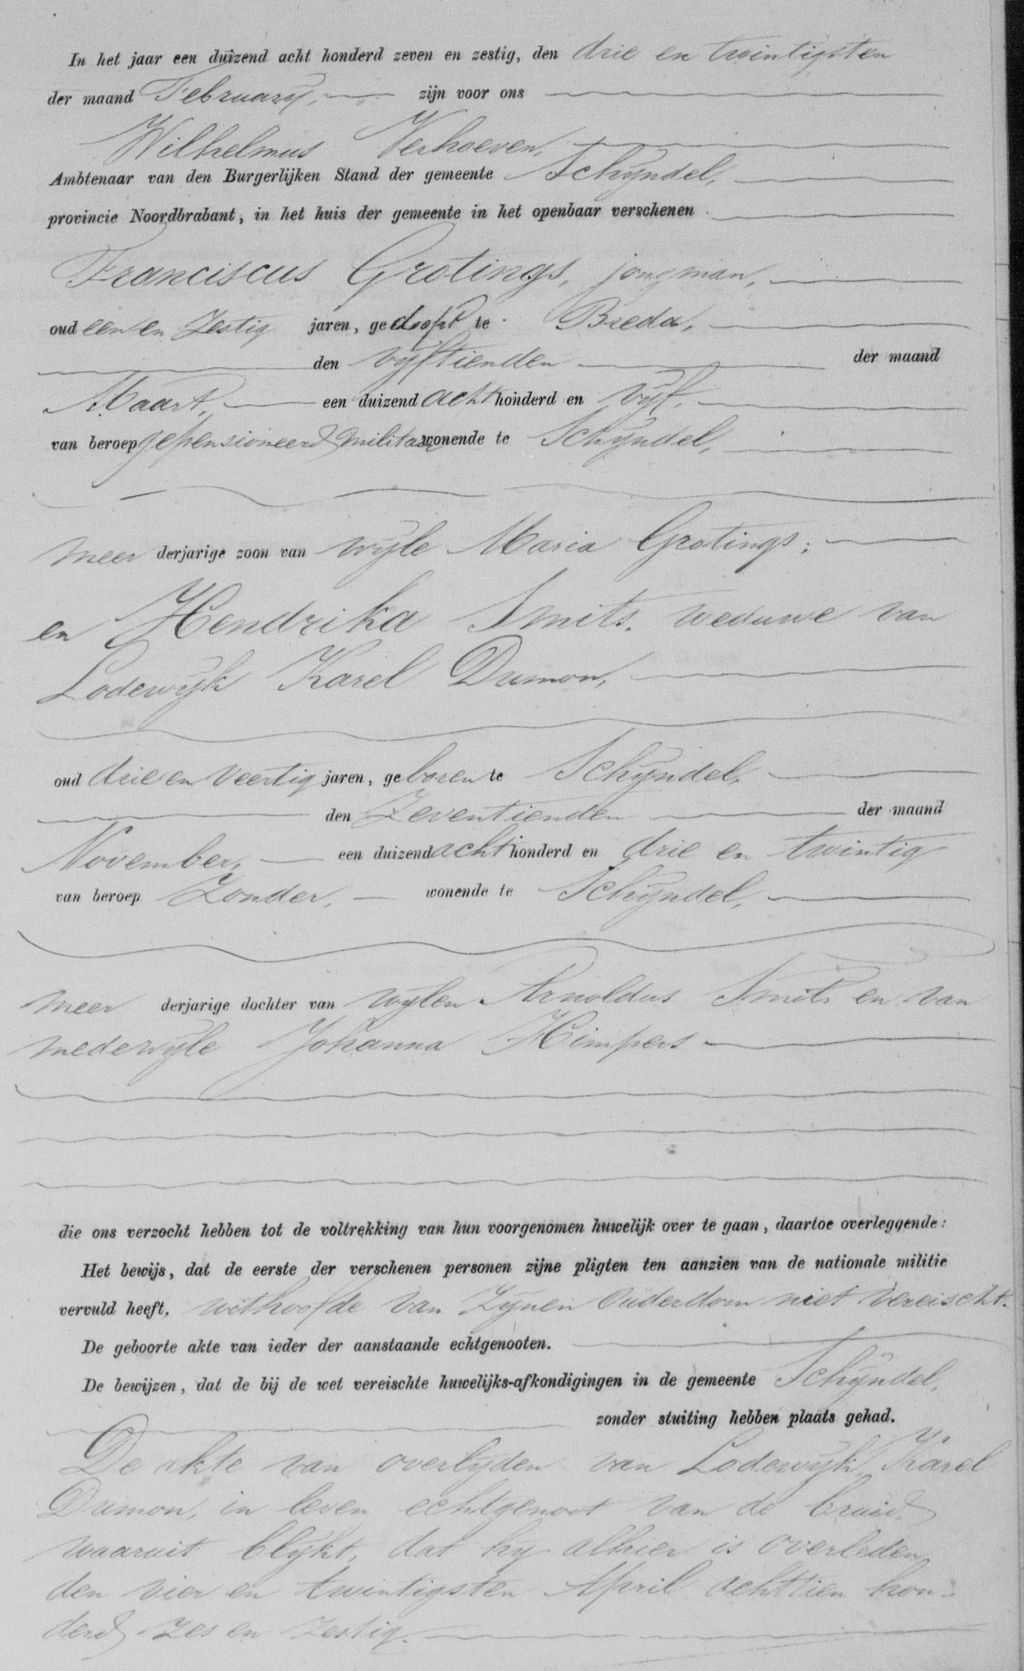 In het jaar een duizend acht honderd zeven en zestig, den drie en twintigsten
der maand February, zijn voor ons
Wilhelmus Verhoeven,
Ambtenaar van den Burgerlijken Stand der gemeente Schijndel,
provincie Noordbrabant, in het huis der gemeente in het openbaar verschenen
Franciscus Grotings, jongman,
oud een en Zestig jaren, gedoopt te Breda,
den vyftienden der maand
Maart, een duizend acht honderd en vyf,
van beroep gepensioneerd militair wonende te Schijndel,
meer derjarige zoon van wyle Maria Grotings;
en Hendrika Smits, weduwe van
Lodewyk Karel Dumon,
oud drie en Veertig jaren, geboren te Schijndel,
den Zeventienden der maand
November, een duizend acht honderd en drie en twintig
van beroep Zonder, wonende te Schijndel,
meer derjarige dochter van wylen Arnoldus Smits en van
medewyle Johanna Kimpers
die ons verzocht hebben tot de voltrekking van hun voorgenomen huwelijk over te gaan, daartoe overleggende:
Het bewijs, dat de eerste der verschenen personen zijne pligten ten aanzien van de nationale militie
vervuld heeft. uithoofde van Zynen Ouderdom niet vereischt.
De geboorte akte van ieder der aanstaande echtgenooten.
De bewijzen, dat de bij de wet vereischte huwelijks-afkondigingen in de gemeente Schijndel,
zonder stuiting hebben plaats gehad.
De akte van overlyden van Lodewyk Karel
Dumon, in leven echtgenoot van de bruid,
waaruit blykt, dat hy alhier is overleden
den vier en twintigsten April achttien hon-
derd Zes en Zestig.